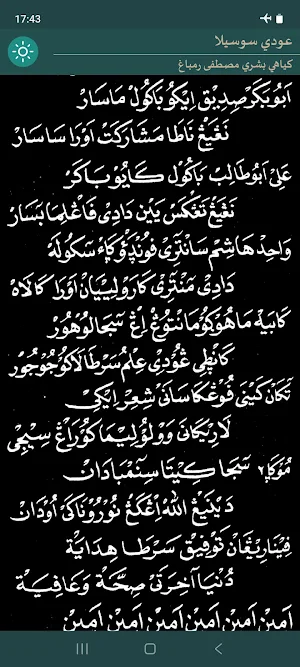 17:43
عودي سوسيلا
كياهي بشري مصطفى رمباغ
ابُوبَكَرْ صِدِيقْ اِيكُو بَاكُولْ مَاسَارْ
نَڠِيڠْ نَاطَا مَشَارَكَتْ اَوْرَا سَاسَارْ
عَلِيْ اَبُوطَالِبْ بَاكُولْ كَايُوْ بَاكَرْ
نَڠِيڠْ تَڠْكَسْ يَيْنْ دَادِيْ ڤَاڠْلِيمَا بَسَارْ
وَاحِدْ هَاشِمْ سَانْتَرِيْ ڤُونْدَوْءْ كَاءْ سَكُولَهْ
دَادِيْ مَنْتَرِيْ كَارَوْلِيْيَانْ اَوْرَا كَالَاهْ
كَابَيْهْ مَاهُوْ كُوْمَانْتُوْڠْ اِڠْ سَجَا لُوْهُوْرْ
كَانْطِيْ ڠُوْدِيْ عِلْمُ سَرْطَا لَاكُوْ جُوْجُوْرْ
تَكَانْ كَيْنَيْ ڤُوْڠْكَاسَانَيْ شِعِرْ اِيْكِيْ
لَارِيْكَانَيْ وَوْلُوْ لِيْمَا كُوْرَاڠْ سِيْجِيْ
مُوْڮَا٢ سَجَا كِيْتَا سِنَمْبَادَانْ
دَيْنِيْڠْ اللّٰهْ اِڠْكَڠْ نُوْرُوْنَاكَيْ اُوْدَانْ
ڤِيْنَارِيْڠَانْ تَوْفِيْقْ سَرْطَا هِدَايَةْ
دُنْيَا آخِرَتَيْ صِحَّةْ وَعَافِيَةْ
اَمِيْنْ اَمِيْنْ اَمِيْنْ اَمِيْنْ اَمِيْنْ اَمِيْنْ